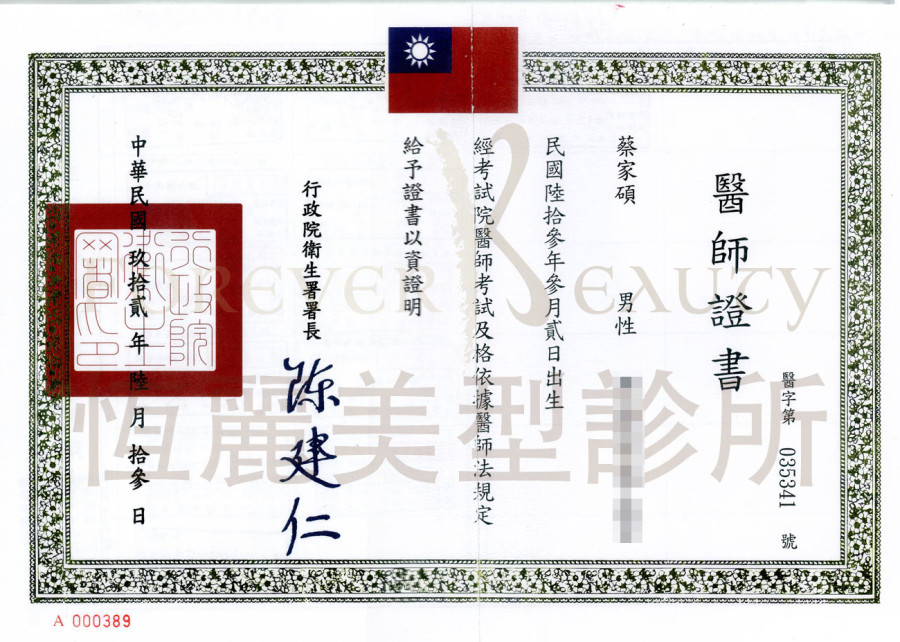 醫字第 035341 號
醫師證書
蔡家碩 男性
民國陸拾參年參月貳日出生
經考試院醫師考試及格依據醫師法規定
給予證書以資證明
行政院衛生署署長 陳建仁
中華民國玖拾貳年陸月拾參日
行政院衛生署印
FOREVER BEAUTY
恆麗美型診所
A 000389